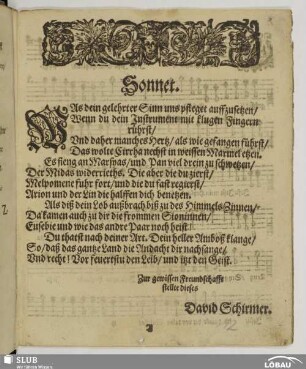 Sonnet.
WAs dein gelehrter Sinn uns pfleget auffzusetzen/
Wenn du dein Instrument mit klugen Fingern
rührst/
Und daher manches Hertz/ als wie gefangen führst/
Das wolte Cirrha nechst in weissen Marmel etzen.
Es fieng an Marsyas/ und Pan viel drein zu schwetzen/
Der Midas widerrieths. Die aber die du zierst/
Melpomene fuhr fort/ und die du fast regierst/
Arion und der Lin die halffen dich benetzen.
Als diß dein Lob außbrach biß zu des Himmels Zinnen/
Da kamen auch zu dir die frommen Sioninnen/
Eusebie und wie das andre Paar noch heist!
Du thatst nach deiner Art. Dein heller Amboß klange/
So/ daß das gantze Land die Andacht dir nachsange/
Und recht! Vor feuertstu den Leib/ und itzt den Geist.
Zur gewissen Freundschafft
stellte dieses
David Schirmer.
SLUB
Wir führen Wissen.
LÖBAU